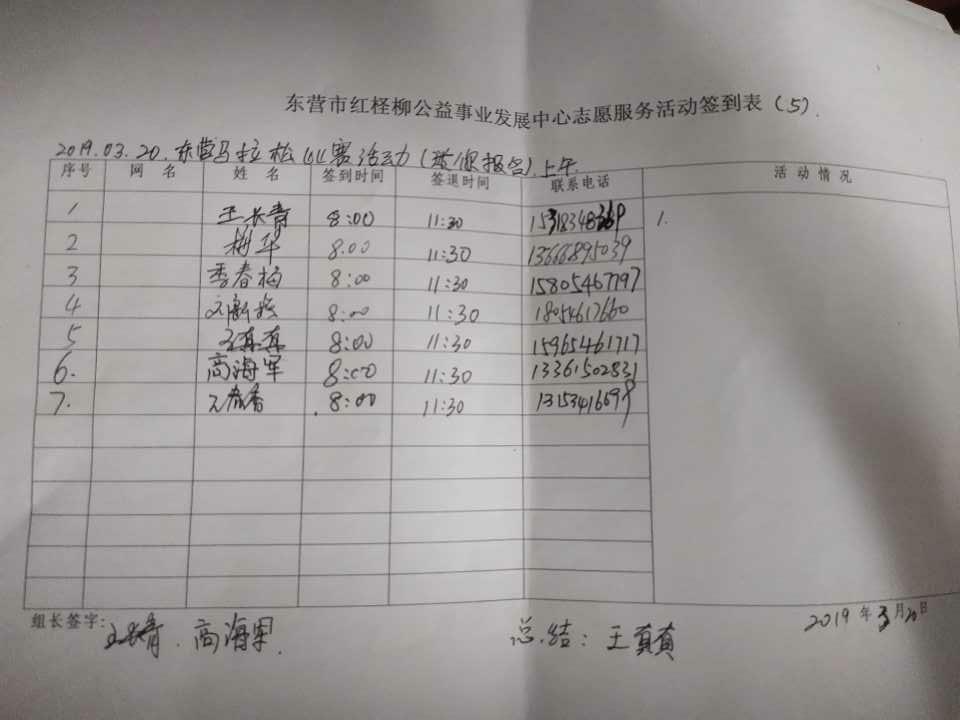 东营市红柽柳公益事业发展中心志愿服务活动签到表（5）.
2019.03.20.东营马拉松 赛活动( 报告)上午
序号 网 名 姓 名 签到时间 签退时间 联系电话 活 动 情 况
1 王长青 8:00 11:30 1.
2 梅华 8.00 11:30 13666895039
3 季春梅 8:00 11:30 15805467797
4 8:00 11:30 18054617660
5 王真真 8:00 11:30 15965461717
6. 高海军 8:00 11:30 13361502831
7. 8:00 11:30
组长签字: 王长青. 高海军.
总结: 王真真
2019年3月20日